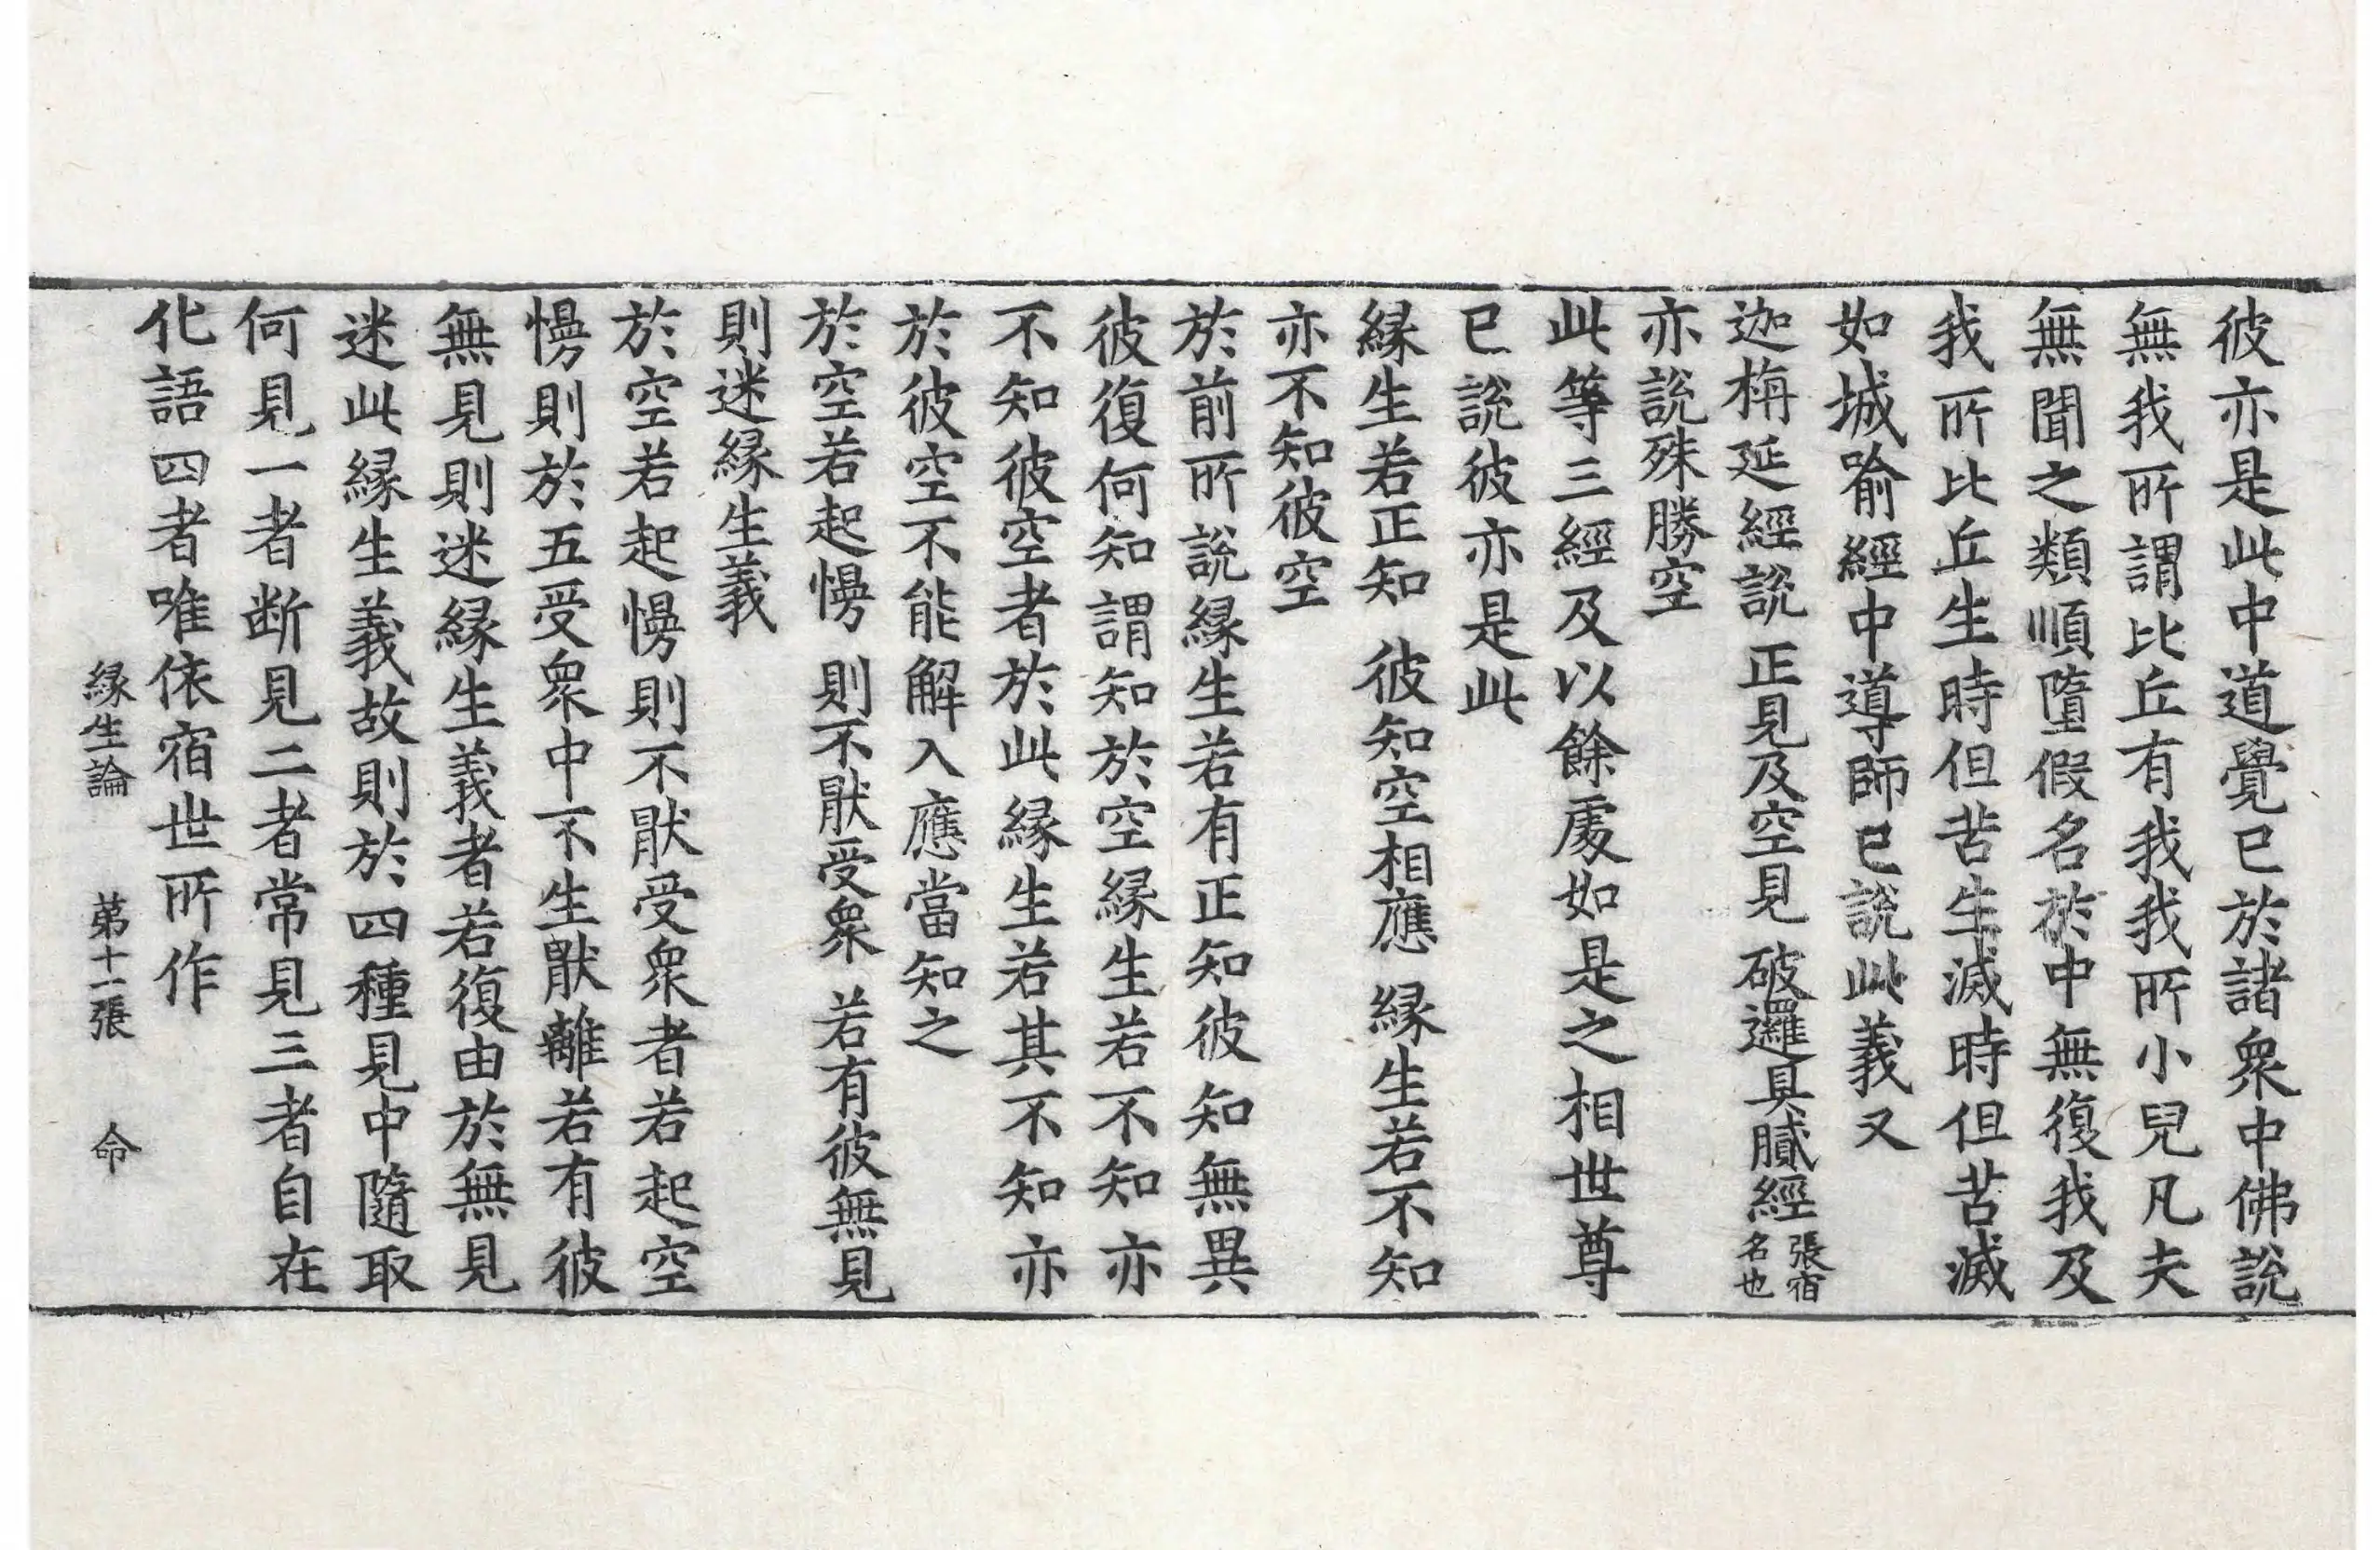 彼亦是此中道覺已於諸衆中佛說
無我所謂比丘有我我所小兒凡夫
無聞之類順墮假名於中無復我及
我所比丘生時但苦生滅時但苦滅
如城喻經中導師已說此義又
迦栴延經說 正見及空見 破邏具膩經張宿名也
亦說殊勝空
此等三經及以餘處如是之相世尊
已說彼亦是此
緣生若正知 彼知空相應 緣生若不知
亦不知彼空
於前所說緣生若有正知彼知無異
彼復何知謂知於空緣生若不知亦
不知彼空者於此緣生若其不知亦
於彼空不能解入應當知之
於空若起慢 則不猒受衆 若有彼無見
則迷緣生義
於空若起慢則不猒受衆者若起空
慢則於五受衆中不生猒離若有彼
無見則迷緣生義者若復由於無見
迷此緣生義故則於四種見中隨取
何見一者斷見二者常見三者自在
化語四者唯依宿世所作
緣生論 第十一張 命